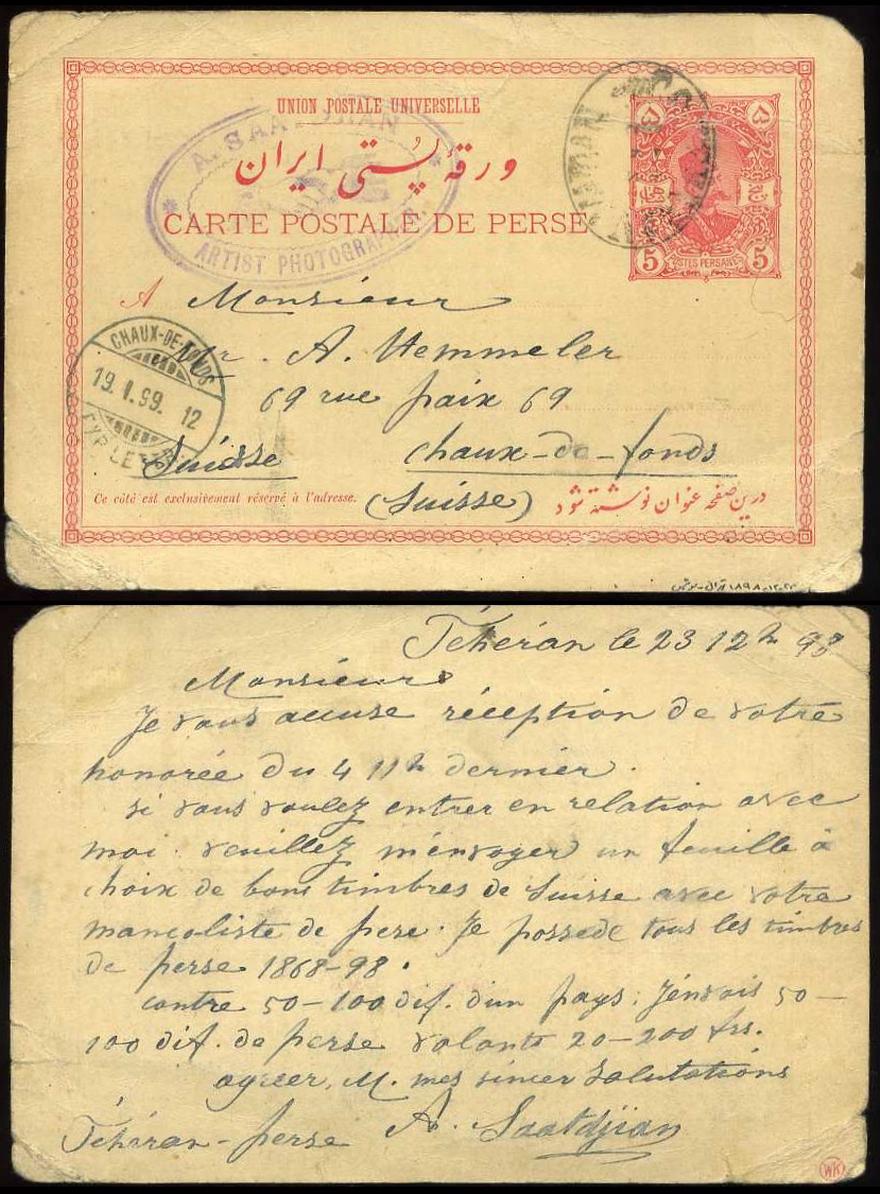 UNION POSTALE UNIVERSELLE
ورقهٔ پُستی ایران
CARTE POSTALE DE PERSE
A. SAA
ARTIST PHOTOGRAPH
5 POSTES PERSANES 5
A Monsieur
Mr. A. Hemmeler
69 rue paix 69
Suisse chaux-de-fonds
(Suisse)
CHAUX-DE-FONDS
19. I. 99. 12
EXP. LETT
Ce côté est exclusivement réservé à l'adresse.
درین صفحه عنوان نوشته شود
Téhéran le 23 12h 98
Monsieur
Je vous accuse réception de votre
honorée du 4 11h dernier.
si vous voulez entrer en relation avec
moi. veuillez m'envoyer un feuille à
choix de bons timbres de Suisse avec votre
mancoliste de perse. Je possede tous les timbres
de perse 1868-98.
contre 50-100 dif. d'un pays: J'envois 50-
100 dif. de perse valants 20-200 frs.
agréer, M. mes sincer salutations
Téhéran-perse A. Saatdjian
WK